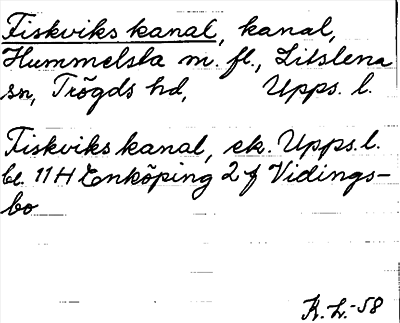 Fiskviks kanal, kanal,
Hummelsta m. fl., Litslena
sn, Trögds hd, Upps. l.
Fiskviks kanal, ek. Upps. l.
bl. 11H Enköping 2 f Vidings-
bo
K. L. -58